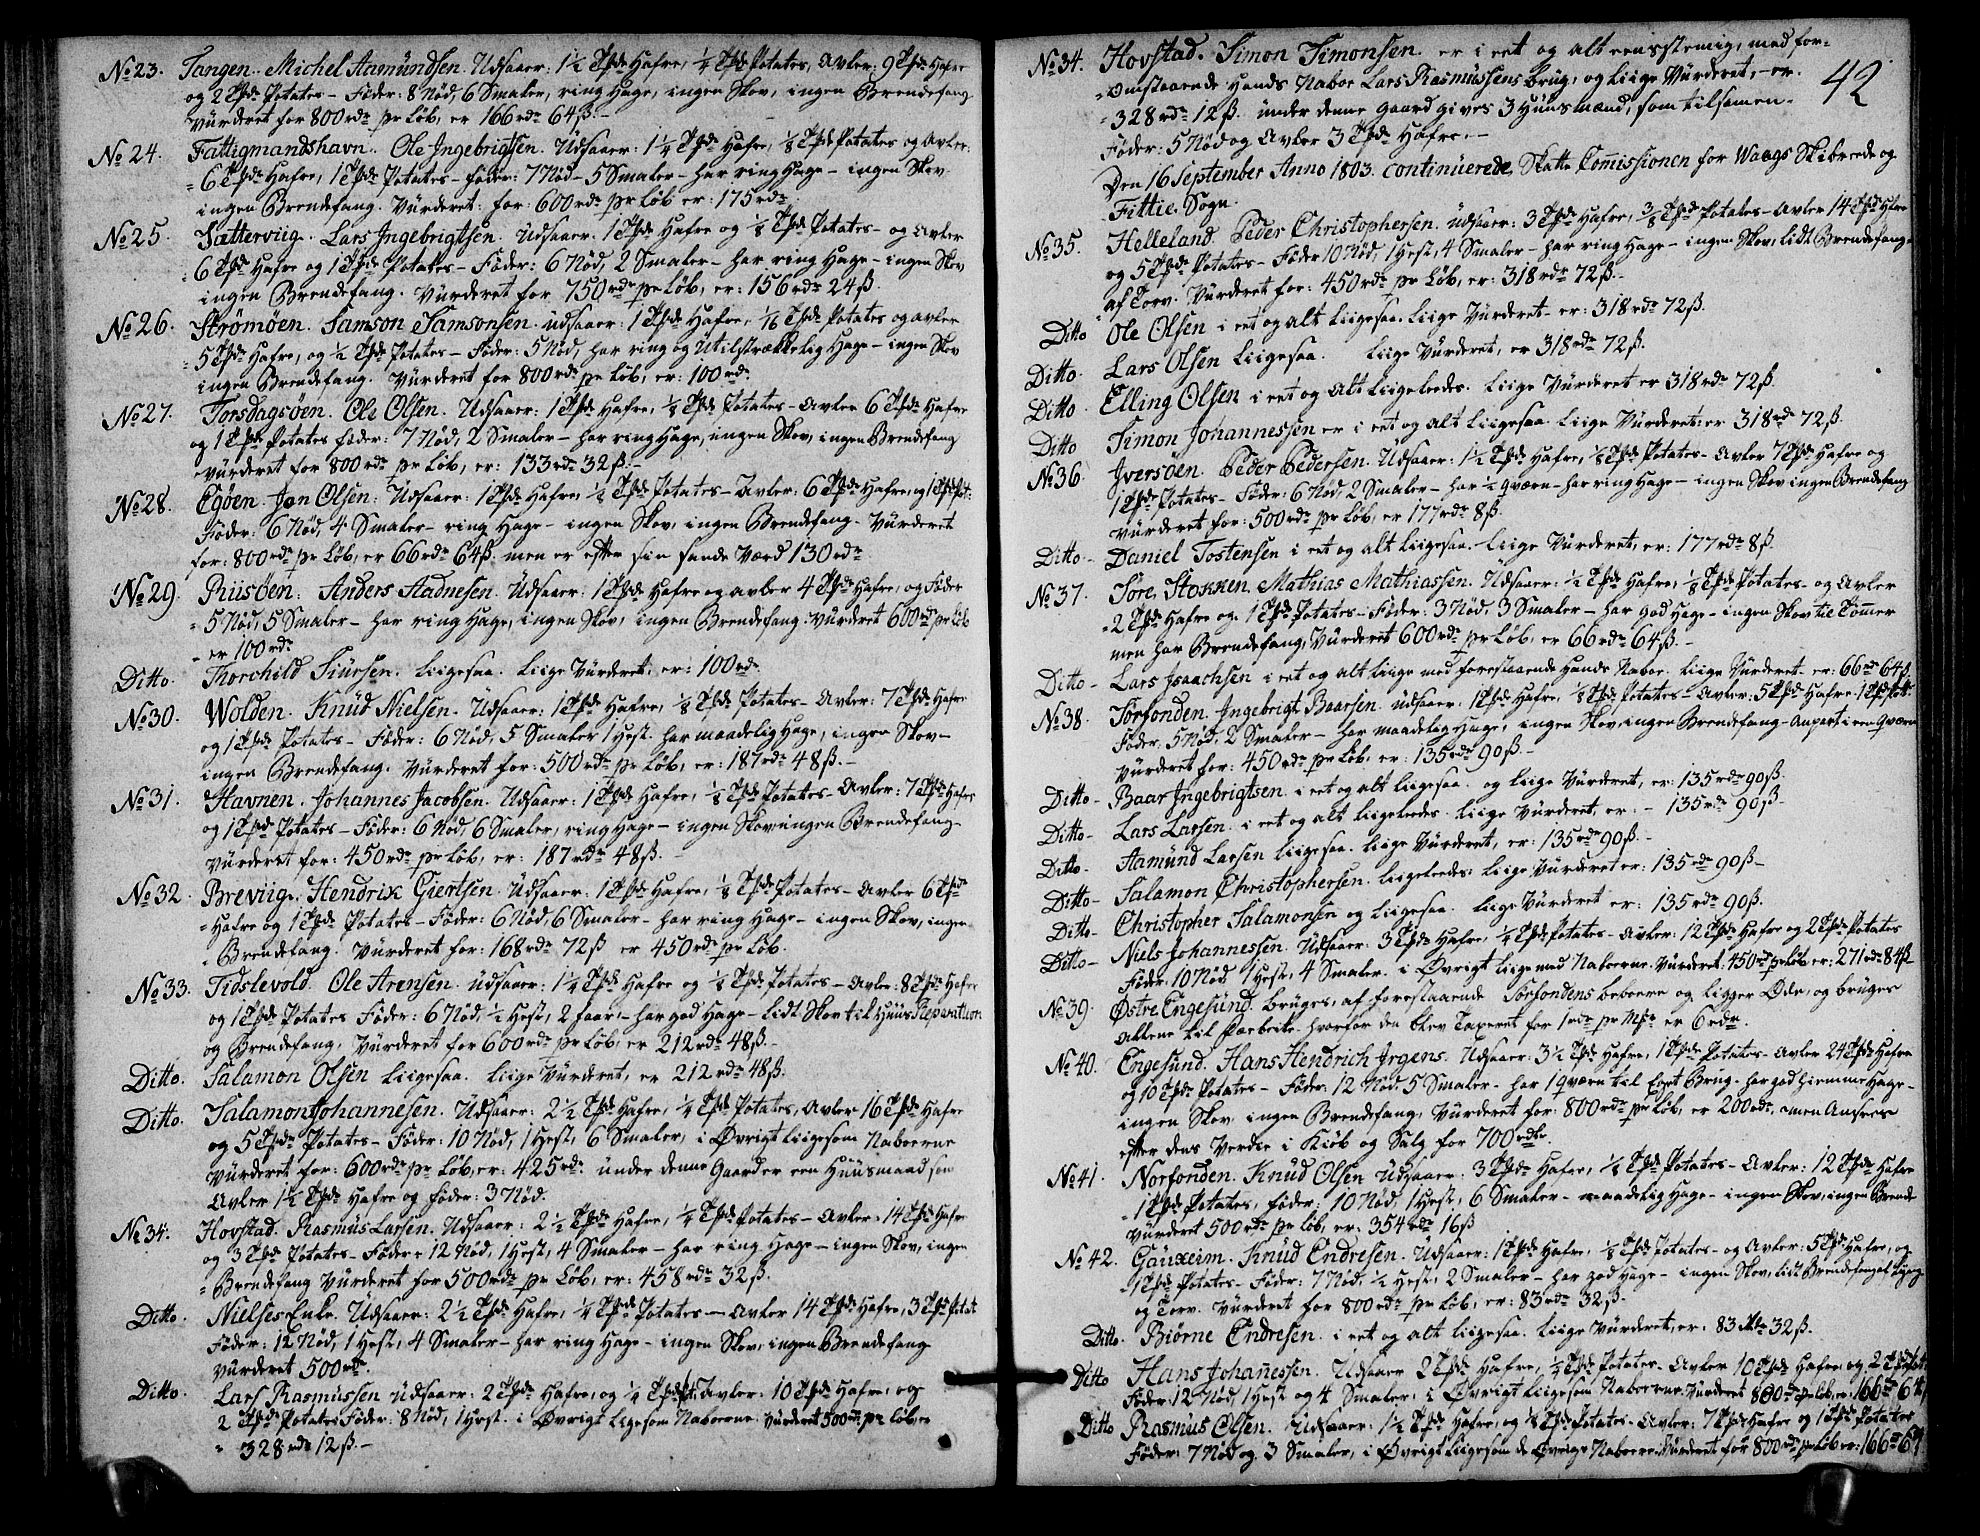 No 23. Tangen. Michel Aamundsen. Udsaaer: 1½ Tønde Hafre, ¼ Tønde Potates, Avler: 9 Tønde Hafre
og 2 Tønde Potates – Føder: 8 Nød, 6 Smaler, ring Hage, ingen Skov, ingen Brendefang
Vurderet for 800 rdr pr Løb, er 166 rdr 64 ß. –
No 24. Fattigmandshavn. Ole Ingebrigtsen. Udsaaer: 1¼ Tønde Hafre, ⅛ Tønde Potates og Avler
6 Tønde Hafre, 1 Tønde Potates – Føder: 7 Nød – 5 Smaler – har ring Hage – ingen Skov
ingen Brendefang. Vurderet for: 600 rdr pr Løb er: 175 rdr.
No 25. Lars Ingebrigtsen. Udsaaer: 1 Tønde Hafre og ⅛ Tønde Potates – og Avler
6 Tønde Hafre og 1 Tønde Potates – Føder: 6 Nød, 2 Smaler – har ring Hage – ingen Skov
ingen Brendefang. Vurderet for 750 rdr pr Løb, er: 156 rdr 24 ß.
No 26. Strømøen. Samson Samsonsen. Udsaaer: 1 Tønde Hafre, 1/16 Tønde Potates og avler
5 Tønde Hafre, og ½ Tønde Potates – Føder: 5 Nød, har ring og Utilstrækkelig Hage – ingen Skov
ingen Brendefang. Vurderet for 800 rdr pr Løb, er: 100 rdr.
No 27. Torsdagsøen. Ole Olsen. Udsaaer: 1 Tønde Hafre, ⅛ Tønde Potates – Avler 6 Tønde Hafre
og 1 Tønde Potates Føder: 7 Nød, 2 Smaler – har ring Hage, ingen Skov, ingen Brendefang
Vurderet for 800 rdr pr Løb, er: 133 rdr 32 ß. –
No 28. Egøen. Jon Olsen: Udsaaer: 1 Tønde Hafre, ⅛ Tønde Potates – Avler: 6 Tønde Hafre, og 1 Tønde Pot:
Føder: 6 Nød, 4 Smaler – ring Hage – ingen Skov, ingen Brendefang – Vurderet
for: 800 rdr pr Løb, er 66 rdr 64 ß. men er efter sin sande Værd 130 rdr.
No 29. Riisøen: Anders Aadnesen. Udsaaer: 1 Tønde Hafre og avler 4 Tønde Hafre, og Føder
5 Nød, 5 Smaler – har ring Hage, ingen Skov, ingen Brendefang: Vurderet 600 rdr pr Løb
er 100 rdr
Ditto. Thorchild Siursen. Liigesaa. Liige Vurderet, er: 100 rdr.
No 30. Wolden. Knud Nielsen. Udsaaer: 1 Tønde Hafre, ⅛ Tønde Potates – Avler: 7 Tønde Hafre
og 1 Tønde Potates – Føder: 6 Nød, 5 Smaler 1 Hest. har maadelig Hage, ingen Skov –
ingen Brendefang. Vurderet for: 500 rdr pr Løb, er: 187 rdr 48 ß. –
No 31. Havnen. Johannes Jacobsen. Udsaaer: 1 Tønde Hafre, ⅛ Tønde Potates – Avler: 7 Tønde Hafre
og 1 Tønde Potates – Føder: 6 Nød, 6 Smaler, ring Hage – ingen Skov, ingen Brendefang –
Vurderet for: 450 rdr pr Løb, er: 187 rdr 48 ß. –
No 32. Breviig. Hendrik Giertsen. Udsaaer: 1 Tønde Hafre, ⅛ Tønde Potates – Avler 6 Tønde
Hafre og 1 Tønde Potates – Føder: 6 Nød, 6 Smaler – har ring Hage – ingen Skov, ingen
Brendefang. Vurderet for: 168 rdr 72 ß er 450 rdr pr Løb.
No 33. Tidslevold. Ole Arensen. Udsaaer: 1¼ Tønde Hafre og ⅛ Tønde Potates – Avler: 8 Tønde Hafre
og 1 Tønde Potates Føder: 6 Nød, ½ Hest, 2 faar – har god Hage – Lidt Skov til Huus Reparation
og Brendefang, Vurderet for 600 rdr pr Løb, er 212 rdr 48 ß. –
Ditto. Salamon Olsen Liigesaa. Liige Vurderet, er 212 rdr 48 ß.
Ditto. Salamon Johannesen. Udsaaer: 2½ Tønde Hafre, ¼ Tønde Potates, Avler 16 Tønde Hafre
og 5 Tønde Potates – Føder: 10 Nød, 1 Hest, 6 Smaler, i Øvrigt Liigesom Naboerne
Vurderet for: 600 rdr pr Løb, er: 425 rdr. under denne Gaard er een Huusmand som
Avler 1½ Tønde Hafre og Føder: 3 Nød.
No 34. Hovstad. Rasmus Larsen. Udsaaer: 2½ Tønde Hafre, ¼ Tønde Potates – Avler: 14 Tønde Hafre
og 3 Tønde Potates – Føder 12 Nød, 1 Hest, 4 Smaler – har ring Hage – ingen Skov, ingen
Brendefang Vurderet for 500 rdr pr Løb, er: 458 rdr 32 ß.
Ditto. Nielses Enke. Udsaaer: 2½ Tønde Hafre, ¼ Tønde Potates – Avler 14 Tønde Hafre, 3 Tønde Potat
Føder: 12 Nød, 1 Hest, 4 Smaler – har ring Hage – ingen Skov, ingen Brendefang
Vurderet 500 rdr.
Ditto. Lars Rasmussen Udsaaer: 2 Tønde Hafre, og ¼ Tønde Pot: Avler: 10 Tønde Hafre, og
2 Tønde Potates Føder: 8 Nød, 1 Hest. i Øvrigt Ligesom Naboerne Vurderet 500 rdr pr Løb er
328 rdr 12 ß. –
42
No 34. Hovstad. Simon Simonsen. er i eet og alt eensstemig, med for-
omstaaende Hands Nabor Lars Rasmussens brug, og Liige Vurderet, – er.
328 rdr 12 ß. under denne Gaard gives 3 Huusmænd, som tilsamen
Føder: 5 Nød og Avler 3 Tønde Hafre. –
Den 16 September Anno 1803. continuerede, Skatte Comissionen for Waags Skibrede og
Fittie Sogn.
No 35. Helleland. Peder Christophersen. Udsaaer: 3 Tønde Hafre, ⅜ Tønde Potates – Avler 14 Tønde Hafre
og 5 Tønde Potates – Føder 10 Nød, 1 Hest, 4 Smaler – har ring Hage – ingen Skov, lidt Brendefang
af Torv. Vurderet for: 450 rdr pr Løb, er: 318 rdr 72 ß. –
Ditto Ole Olsen i eet og alt Liigesaa. Liige Vurderet – er: 318 rdr 72 ß.
Ditto. Lars Olsen Liigesaa. Liige Vurderet, er 318 rdr 72 ß.
Ditto. Elling Olsen i eet og alt Liigeleedes. Liige Vurderet er 318 rdr 72 ß.
Ditto Simon Johannessen er i eet og alt Liigesaa Liige Vurderet: er 318 rdr 72 ß.
No 36. Iversøen. Peder Pedersen. Udsaaer: 1½ Tønde Hafre, ⅛ Tønde Potates – Avler 7 Tønde Hafre og
1 Tønde Potates – Føder: 6 Nød, 2 Smaler – har ½ qværn – har ring Hage – ingen Skov ingen Brendefang
Vurderet for: 500 rdr pr Løb, er 177 rdr 8 ß.
Ditto – Daniel Tostensen i eet og alt Liigesaa. Liige Vurderet, er: 177 rdr 8 ß.
No 37. Søre, Stokken. Mathias Mathiassen. Udsaaer: ½ Tønde Hafre, ⅛ Tønde Potates – og Avler
2 Tønde Hafre og 1 Tønde Potates – Føder: 3 Nød, 3 Smaler – har god Hage – ingen Skov til Tømer
men har Brendefang, Vurderet 600 rdr pr Løb, er 66 rdr 64 ß. –
Ditto – Lars Isaachsen i eet og alt Liige med forestaaende Hands Nabor. Liige Vurderet. er: 66 rdr 64 ß
No 38. Sørfonden. Ingebrigt Baarsen. Udsaaer: 1 Tønde Hafre, ⅛ Tønde Potates – Avler: 5 Tønde Hafre 1 Tønde Pot:
Føder: 5 Nød, 2 Smaler – har maadelig Hage, ingen Skov, ingen Brendefang – Anpart i een qværn
Vurderet for: 450 rdr pr Løb, er: 135 rdr 90 ß. –
Ditto – Baar Ingebrigtsen. i eet og alt Liigesaa. og Liige Vurderet, er: 135 rdr 90 ß.
Ditto – Lars Larsen. i eet og alt Liigeleedes. Liige Vurderet, er: – 135 rdr 90 ß –
Ditto. Aamund Larsen Liigesaa. Liige Vurderet, er: 135 rdr 90 ß. –
Ditto – Salamon Christophersen. Liigeleedes. Liige Vurderet er: 135 rdr 90 ß –
Ditto – Christopher Salamonsen og Liigesaa. Liige Vurderet er: 135 rdr 90 ß.
Ditto – Niels Johannessen. Udsaaer: 3 Tønde Hafre, ¼ Tønde Potates – Avler: 12 Tønde Hafre og 2 Tønde Potates
Føder: 10 Nød 1 Hest, 4 Smaler. i Øvrigt Liige med Naboerne. Vurderet: 450 rdr pr Løb er: 271 rdr 84 ß
No 39. Østre Engesund. bruges, af forestaaende Sørfondens beboere og ligger Øde, og bruges
allene til hvorfor den blev Taxeret for 1 rdr pr er 6 rdr.
No 40. Engesund. Hans Hendrich Jrgens. Udsaaer: 3½ Tønde Hafre, 1 Tønde Potates – Avler 24 Tønde Hafre
og 10 Tønde Potates – Føder. 12 Nød 5 Smaler – har 1 qværn til Eget Brug – har god Hiemme Hage –
ingen Skov, ingen Brendefang, Vurderet for: 800 rdr pr Løb, er 200 rdr, men Ansees
efter dens Verdie i Kiøb og Salg for 700 rdr.
No 41. Norfonden. Knud Olsen Udsaaer: 3 Tønde Hafre, ⅛ Tønde Potates – Avler: 12 Tønde Hafre
1 Tønde Potates, Føder: 10 Nød, 1 Hest, 6 Smaler – maadelig Hage – ingen Skov, ingen Brende
Vurderet 500 rdr pr Løb, er: 354 rdr 16 ß
No 42. Gauxeim. Knud Endresen. Udsaaer: 1 Tønde Hafre, ⅛ Tønde Potates – og Avler: 5 Tønde Hafre, og
1 Tønde Potates – Føder: 7 Nød. ½ Hest, 2 Smaler – har god Hage – ingen Skov, lidt Brendefang af Liung
og Torv. Vurderet for 800 rdr pr Løb, er: 83 rdr 32 ß.
Ditto. Biørne Endresen. i eet og alt Liigesaa. Liige Vurderet, er: 83 rdr 32 ß.
Ditto Hans Johannessen. Udsaaer 2 Tønde Hafre, ¼ Tønde Potates – Avler 10 Tønde Hafre, og 2 Tønde Potat:
Føder: 12 Nød, 1 Hest og 4 Smaler, i Øvrigt Liigesom Naboerne. Vurderet 800 rdr pr Løb, er: 166 rdr 64
Ditto Rasmus Olsen. Udsaaer: 1½ Tønde Hafre, og ⅛ Tønde Potates – Avler: 7 Tønde Hafre og 1 Tønde Potates
Føder: 7 Nød og 3 Smaler, i Øvrigt Liigesom de Øvrige Naboer. Vurderet for 800 rdr pr Løb er: 166 rdr 64